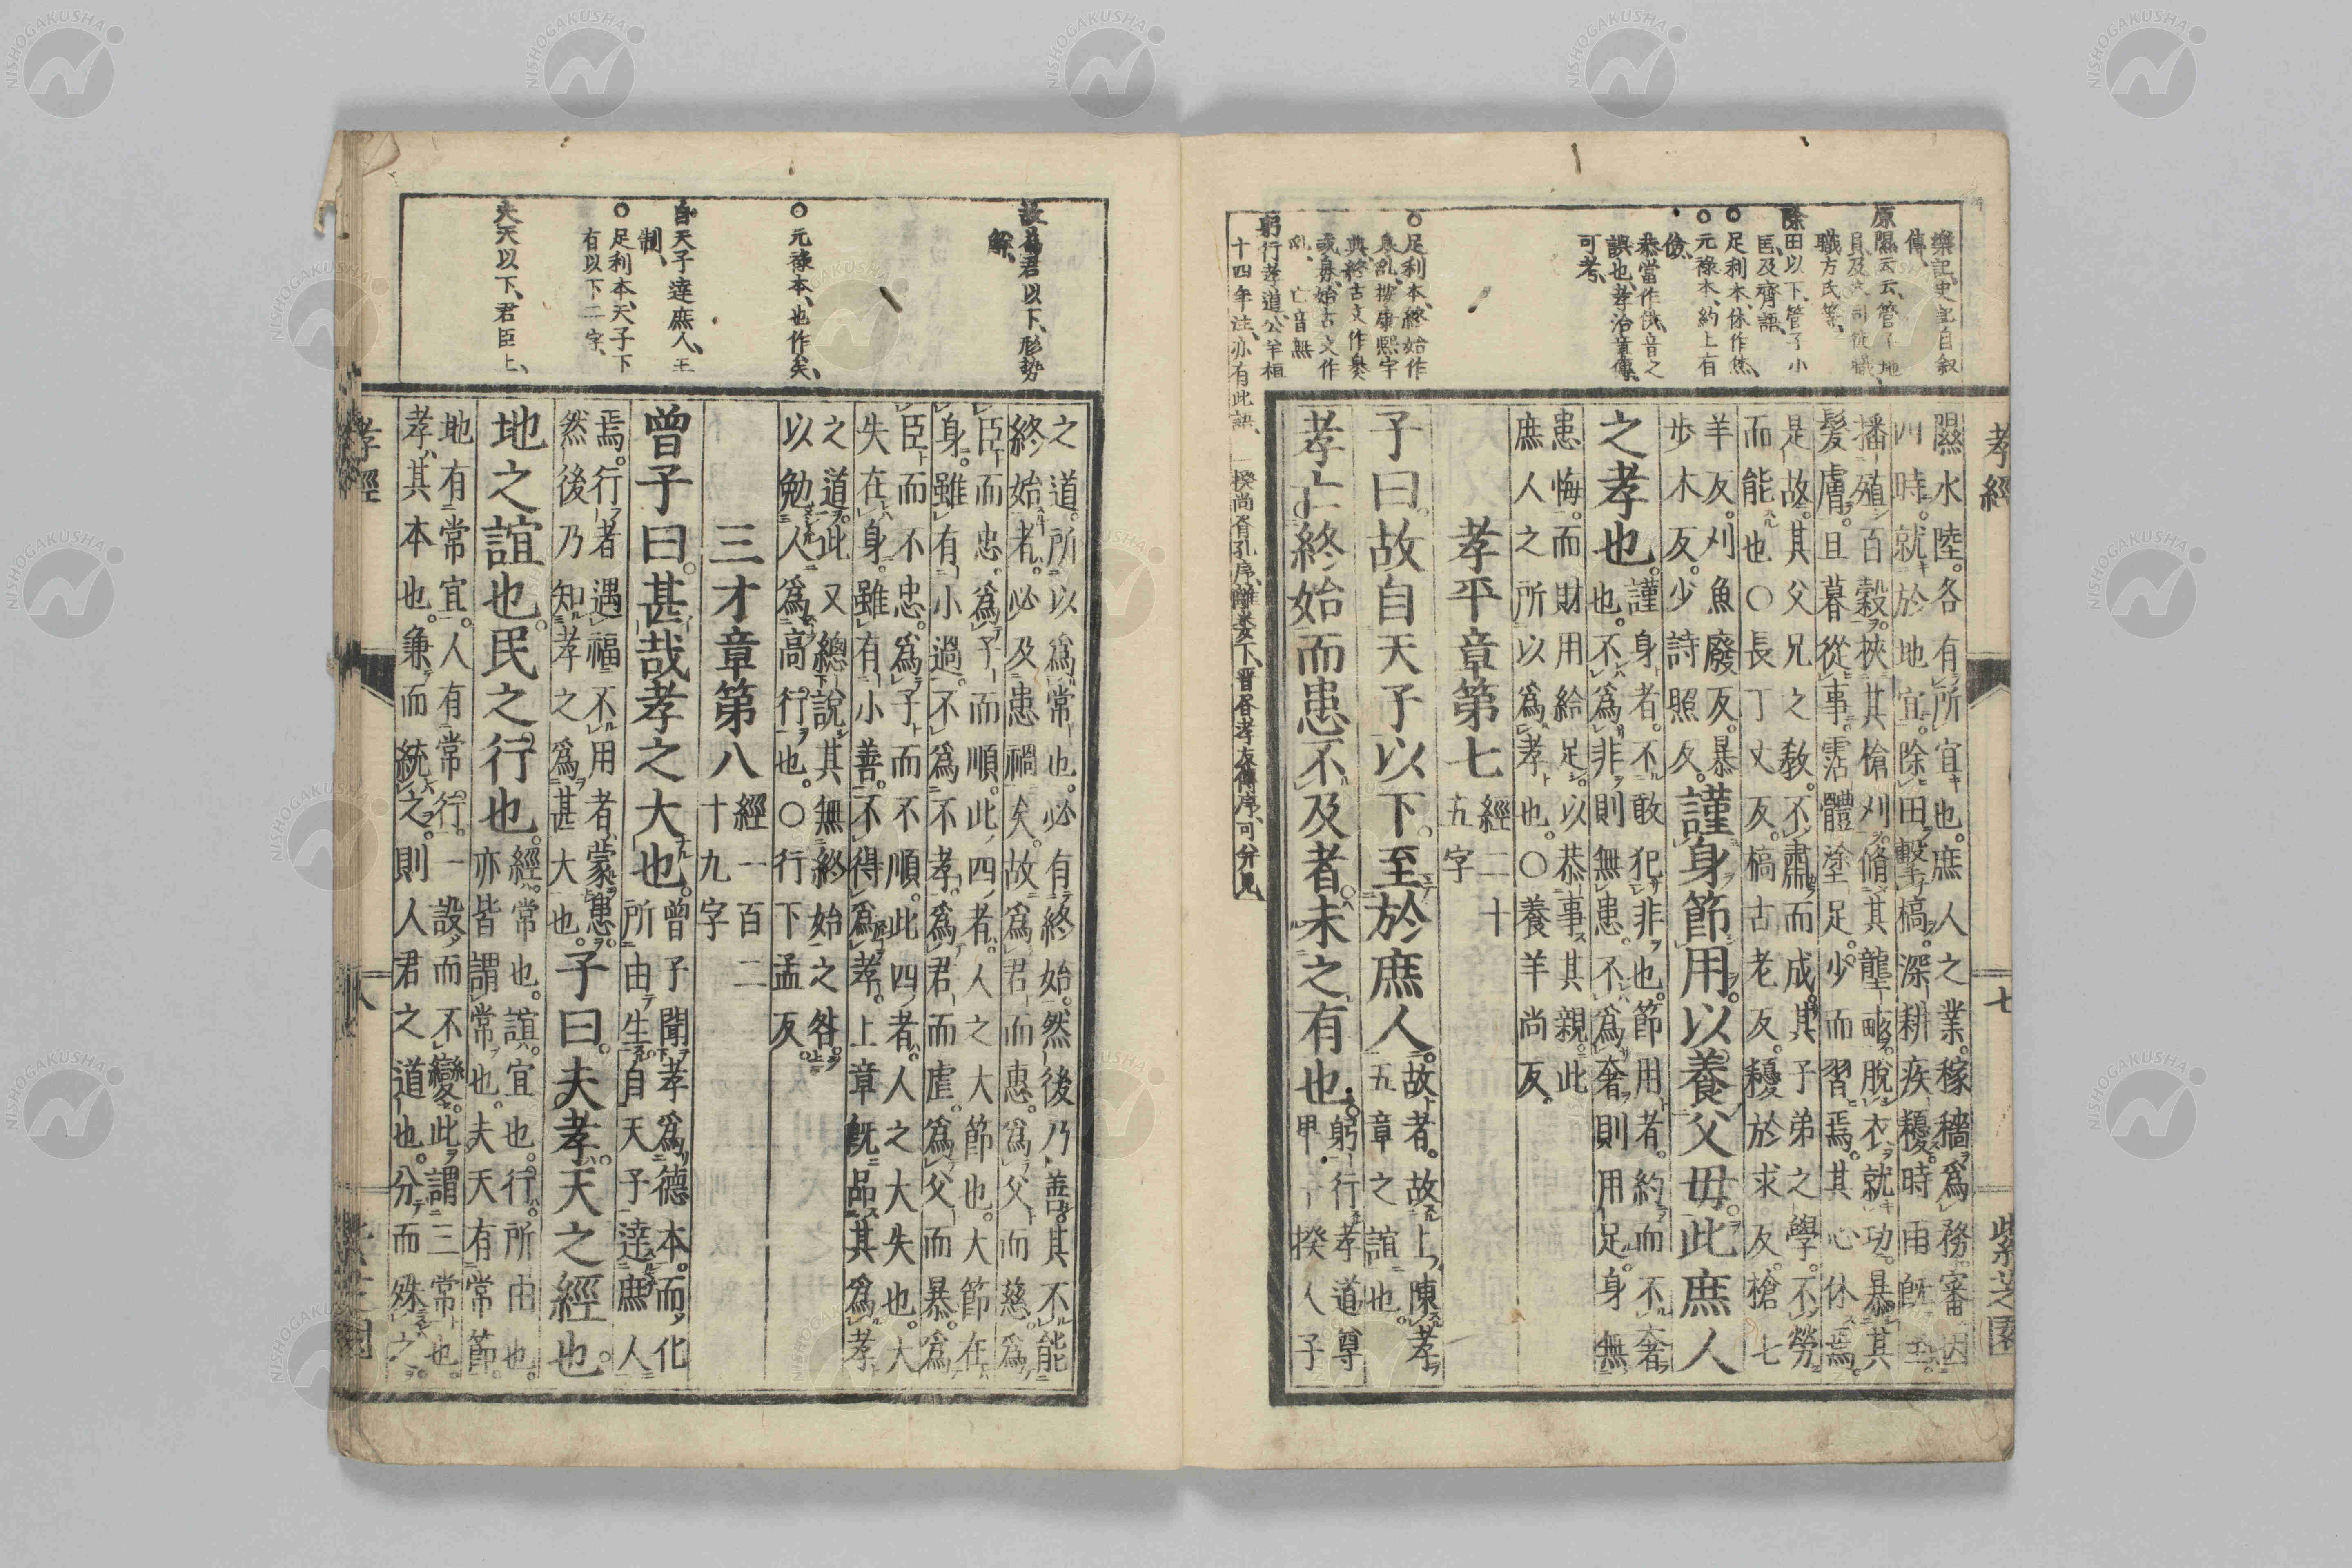 孝經
七
紫芝園
樂記、史記自叙
傳、
原隰云云、管子地
員及
職方氏等、
除田以下、管子小
匡、及齊語、
○足利本、休作烋、
○元祿本、約上有
儉、
恭當作供、音之
誤也、孝治章傳、
可考、
○足利本、終始作
典終古文作𡕥
或𡕥、始古文作
亡音無
躬行孝道、公羊桓
十四年注、亦有此語、
隰水陸。各有所宜也。庶人之業。稼穡爲務。審因
四時。就於地宜。除田擊槁。深耕疾耰。時雨旣至。
播殖百穀。挾其槍刈。脩其壟畝。脫衣就功。暴其
髮膚。旦暮從事。霑體塗足。少而習焉。其心休焉。
是故。其父兄之教。不肅而成。其子弟之學。不勞
而能也○長丁丈反。槁古老反。耰於求反。槍七
羊反。刈魚廢反。暴
步木反。少詩照反。謹身節用。以養父母。此庶人
之孝也。謹身者。不敢犯非也。節用者。約而不奢
也。不爲非。則無患。不爲奢。則用足。身無
患悔。而財用給足。以恭事其親。此
庶人之所以爲孝也。○養羊尚反。
孝平章第七 經二十
五字
子曰。故自天子以下。至於庶人。故者。故上陳孝
五章之誼也。
孝亡終始。而患不及者。未之有也。躬行孝道。尊
揆人子
之道。所以爲常也。必有終始。然後乃善。其不能
終始者。必及患禍矣。故爲君而惠。爲父而慈。爲
臣而忠。爲子而順。此四者。人之大節也。大節在
身。雖有小過。不爲不孝。爲君而虐。爲父而暴。爲
臣而不忠。爲子而不順。此四者。人之大失也。大
失在身。雖有小善。不得爲孝。上章旣品其爲孝
之道。此又總說其無終始之咎。
以勉人爲高行也。○行下孟反。
三才章第八 經一百二
十九字
曾子曰。甚哉孝之大也。曾子聞孝爲德本。而化
所由生。自天子達庶人
焉。行者遇福。不用者蒙患。
然後乃知孝之爲甚大也。子曰。夫孝。天之經也。
地之誼也。民之行也。經。常也。誼。宜也。行。所由也。
亦皆謂常也。夫天有常節。
地有常宜。人有常行。一設而不變。此謂三常也。
孝其本也。兼而統之。則人君之道也。分而殊之。
故爲君以下、形勢
解、
○元祿本、也作矣、
自天子達庶人、王
制、
○足利本、天子下
有以下二字、
夫天以下、君臣上、
孝經
八
NISHOGAKUSHA